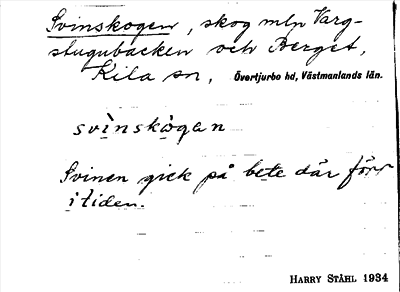 Svinskogen, skog mlp Varg-
stugubacken och Berget,
Kila sn, Övertjurbo hd, Västmanlands län.
svìnskògan
Svinen gick på bete där förr
i tiden.
HARRY STÅHL 1934